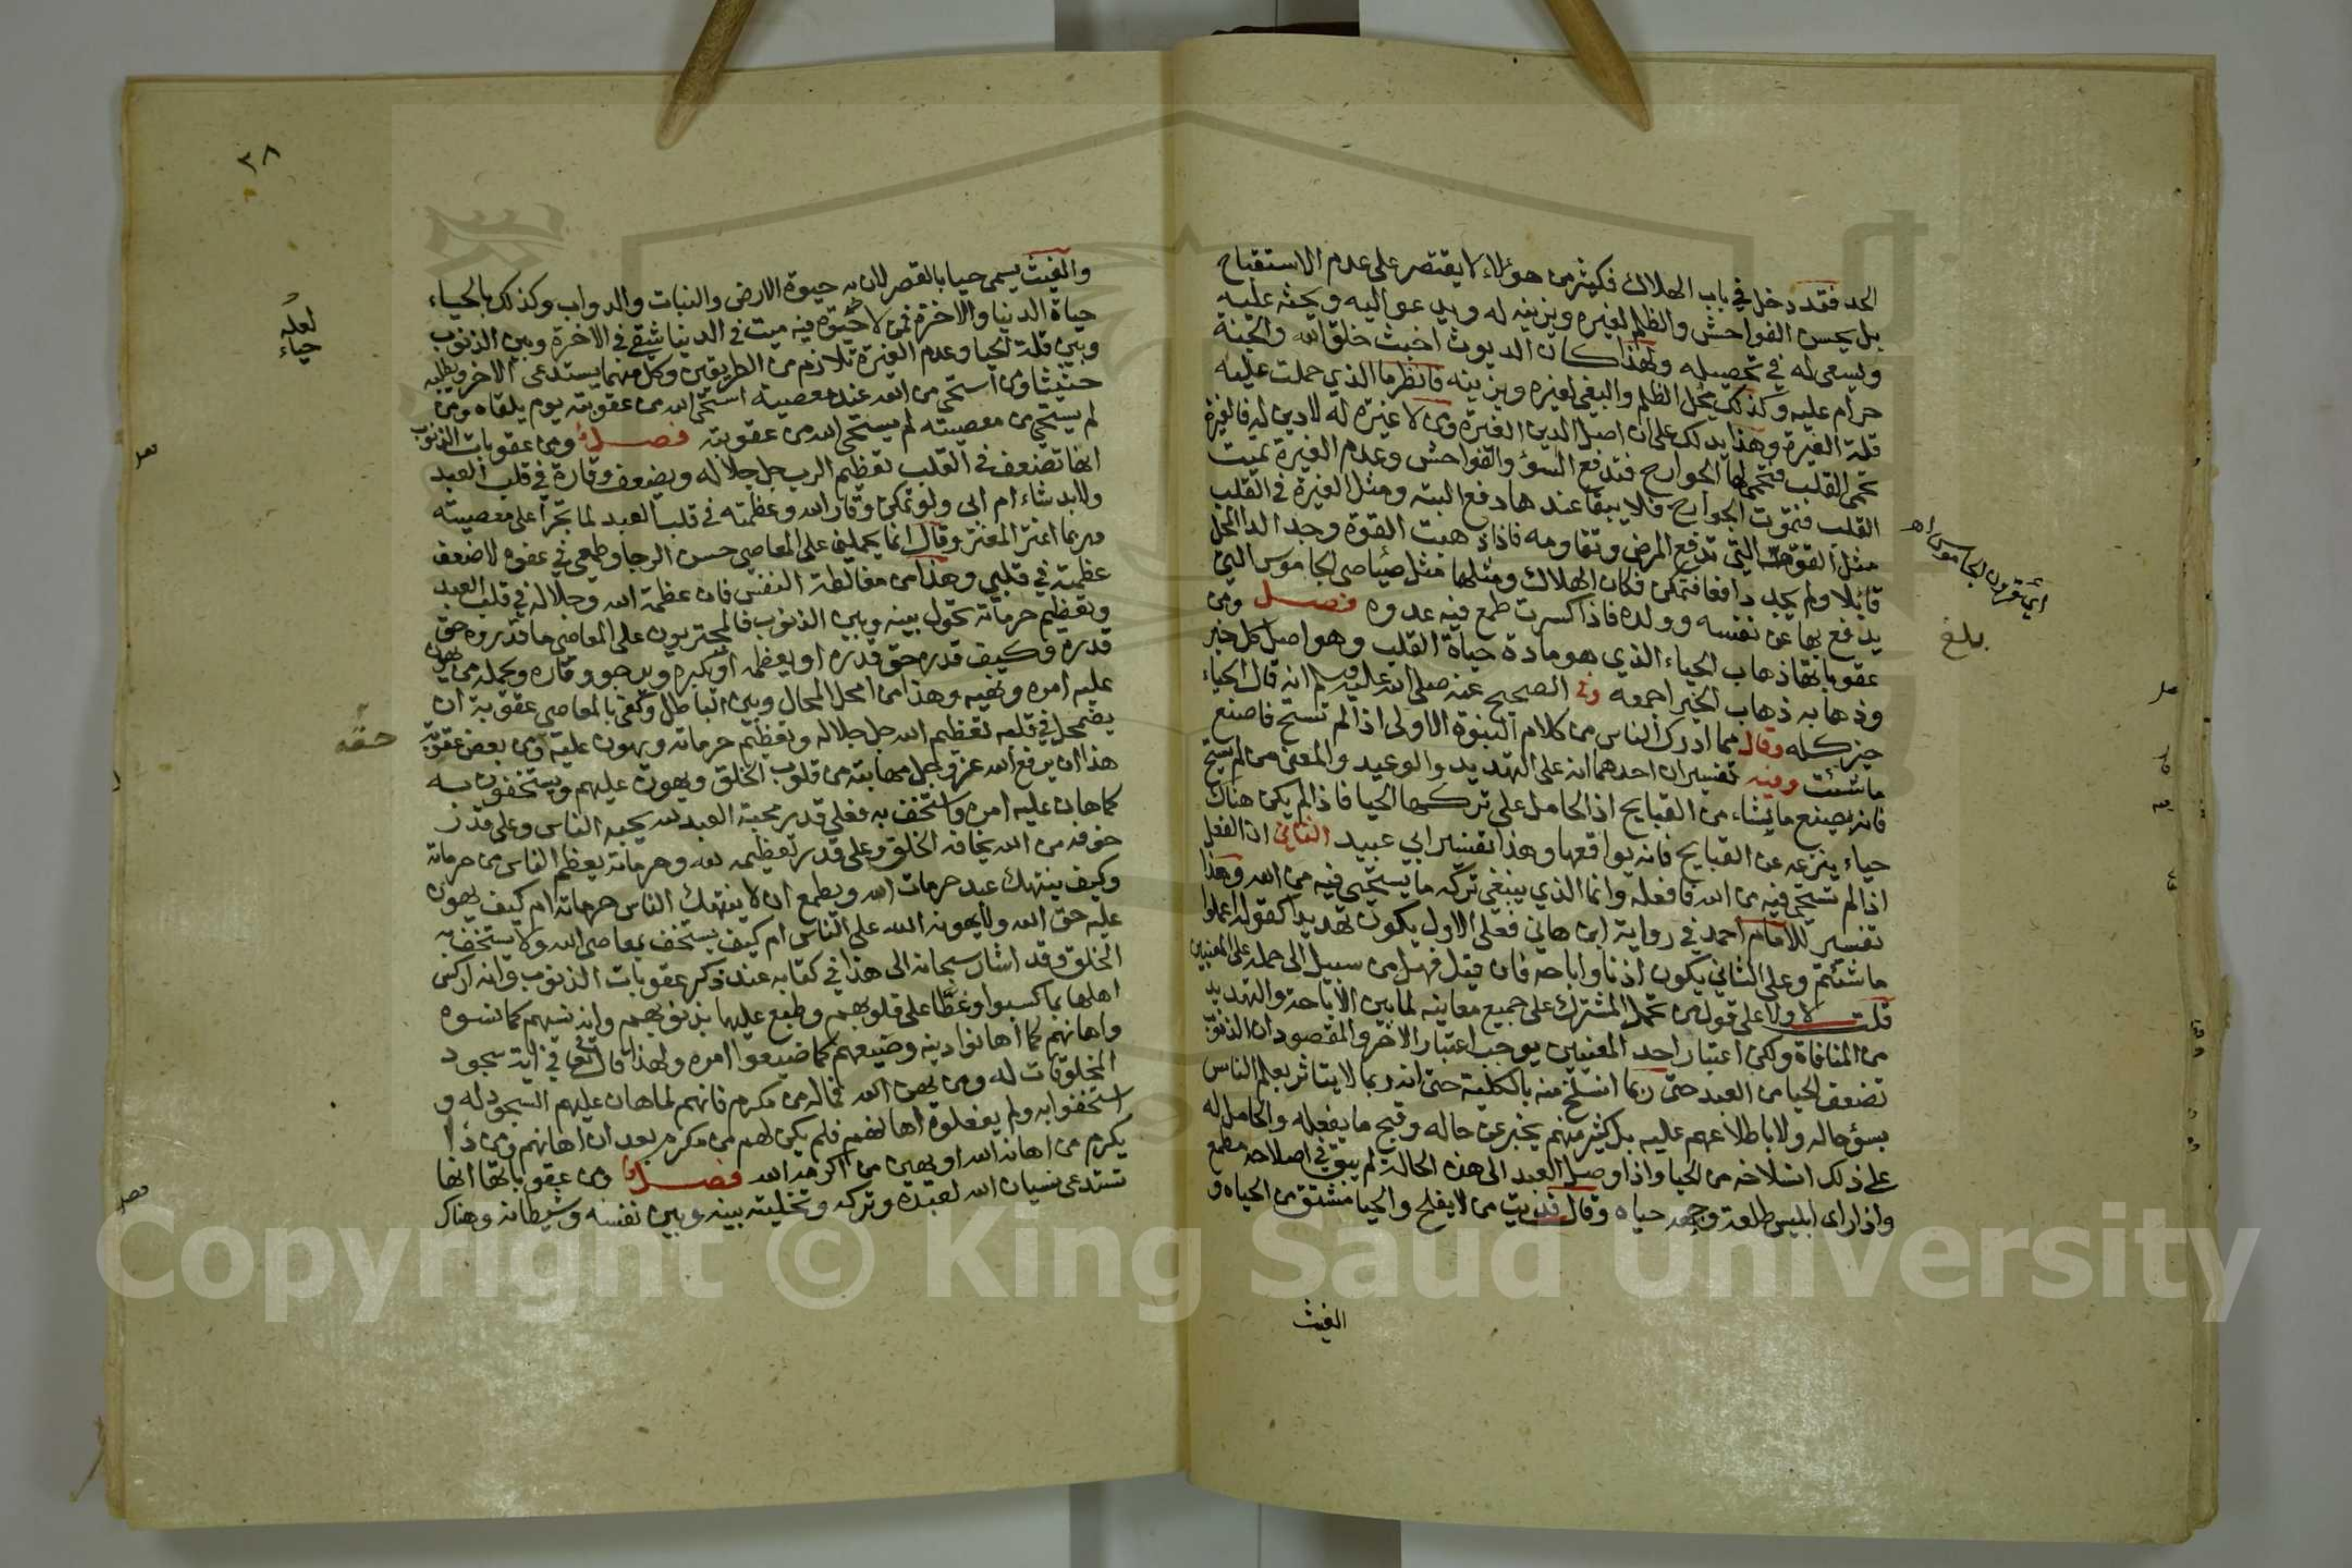 الحد فقد دخل في باب الهلاك فكثير من هؤلاء لا يقتصر على عدم الاستقباح
بل يحسن الفواحش والظلم لغيره ويزينه له ويدعوا اليه ويحثه عليه
ويسعى له في تحصيله ولهذا كان الديوث اخبث خلق الله والجنة
حرام عليه وكذلك محل الظلم والبغي لغيره ويزينه فانظر ما الذي حملت عليه
قلة الغيرة وهذا يدلك على ان اصل الدين الغيرة ومن لا غيرة له لا دين له فالغيرة
تحمى القلب فتحمى لها الجوارح فتدفع السؤ والفواحش وعدم الغيرة تميت
القلب فتموت الجوارح فلا يبقا عندها دفع البته ومثل الغيرة في القلب
مثل القوة التي تدفع المرض وتقاومه فاذا ذهبت القوة وجد الدا المحل
قابلا ولم يجد دافعا فتمكن فكان الهلاك ومثلها مثل صياصي الجاموس التي
يدفع بها عن نفسه وولده فاذا كسرت طمع فيه عدوه فصل ومن
عقوباتها ذهاب الحياء الذي هو مادة حياة القلب وهو اصل كل خير
وذهابه ذهاب الخير اجمعه وفي الصحيح عنه صلى الله عليه وسلم انه قال الحياء
خير كله وقال مما ادرك الناس من كلام النبوة الاولى اذا لم تستح فاصنع
ما شئت وفيه تفسيران احدهما انه على التهديد والوعيد والمعنى من لم يستح
فانه يصنع ما يشاء من القبايح اذ الحامل على تركها الحيا فاذا لم يكن هناك
حياء ينزعه عن القبايح فانه يواقعها وهذا تفسير ابي عبيد الثاني ان الفعل
اذا لم تستح فيه من الله فافعله وانما الذي ينبغي تركه ما يستحي فيه من الله وهذا
تفسير للامام احمد في رواية ابن هاني فعلى الاول يكون تهديدا كقوله اعملوا
ما شئتم وعلى الثاني يكون اذنا واباحه فان قيل فهل من سبيل الى حمله على المعنيين
قلت لا ولا على قول من يحمل المشترك على جميع معانيه لما بين الاباحة والتهديد
من المنافاة ولكن اعتبار احد المعنيين يوجب اعتبار الاخر والمقصود ان الذنوب
تضعف الحيا من العبد حتى ربما انسلخ منه بالكلية حتى انه ربما لا يتاثر بعلم الناس
بسؤ حاله ولا باطلاعهم عليه بل كثير منهم يخبر عن حاله وقبح ما يفعله والحامل له
على ذلك انسلاخه من الحيا واذا وصل العبد الى هذه الحالة لم يبق في اصلاحه مطمع
واذا راى ابليس طلعة وجهه حياه وقال فديت من لا يفلح والحيا مشتق من الحياه و
الغيث
اي قرون الجاموس اهـ
بلغ
٣٨
والغيث يسمى حيا بالقصر لان به حيوة الارض والنبات والدواب وكذلك بالحياء
حياة الدنيا والاخرة فمن لا حيوة فيه ميت في الدنيا شقي في الاخرة وبين الذنوب
وبين قلة الحيا وعدم الغيرة تلازم من الطريقين وكل منهما يستدعي الاخر ويطلبه
حثيثا ومن استحى من الله عند معصيته استحى الله من عقوبته يوم يلقاه ومن
لم يستحي من معصيته لم يستحي الله من عقوبته فصل ومن عقوبات الذنوب
انها تضعف في القلب تعظيم الرب جل جلاله ويضعف وقارة في قلب العبد
ولا بد شاء ام ابى ولو تمكن وقار الله وعظمته في قلب العبد لما تجرأ على معصيته
وربما اغتر المغتر وقال انما يحملني على المعاصي حسن الرجا وطمعي في عفوه لا ضعف
عظمته في قلبي وهذا من مغالطة النفس فان عظمة الله وجلاله في قلب العبد
وتعظيم حرماته تحول بينه وبين الذنوب فالمتجريون على المعاصي ما قدروه حق
قدره وكيف قدره حق قدره او يعظمه او يكبره ويرجو وقاره ويجمله من يهون
عليه امره ونهيه وهذا من امحل المحال وبين الباطل وكفى بالمعاصي عقوبة ان
يضمحل في قلبه تعظيم الله جل جلاله وتعظيم حرماته ويهون عليه ومن بعض عقوبة
هذا ان يرفع الله عز وجل مهابته من قلوب الخلق ويهون عليهم ويستخفون به
كما هان عليه امره واستخف به فعلى قدر محبة العبد لله يحبه الناس وعلى قدر
خوفه من الله يخافه الخلق وعلى قدر تعظيمه لله وحرماته يعظم الناس من حرماته
وكيف ينتهك عبد حرمات الله ويطمع ان لا ينتهك الناس حرماته ام كيف يهون
عليه حق الله ولا يهونه الله على الناس ام كيف يستخف بمعاصي الله ولا يستخف به
الخلق وقد اشار سبحانه الى هذا في كتابه عند ذكر عقوبات الذنوب وانه اركس
اهلها بما كسبوا وغطا على قلوبهم وطبع عليها بذنوبهم وانه نسيهم كما نسوه
واهانهم كما اهانوا دينه وضيعهم كما ضيعوا امره ولهذا قال تعالى في اية سجود
المخلوقات له ومن يهن الله فماله من مكرم فانهم لما هان عليهم السجود له و
استخفوا به ولم يفعلوه اهانهم فلم يكن لهم من مكرم بعد ان اهانهم ومن ذا
يكرم من اهانه الله او يهين من اكرمه الله فصل ومن عقوباتها انها
تستدعي نسيان الله لعبده وتركه وتخليته بينه وبين نفسه وشيطانه وهناك
لعله
حياء
حقه
Copyright © King Saud University